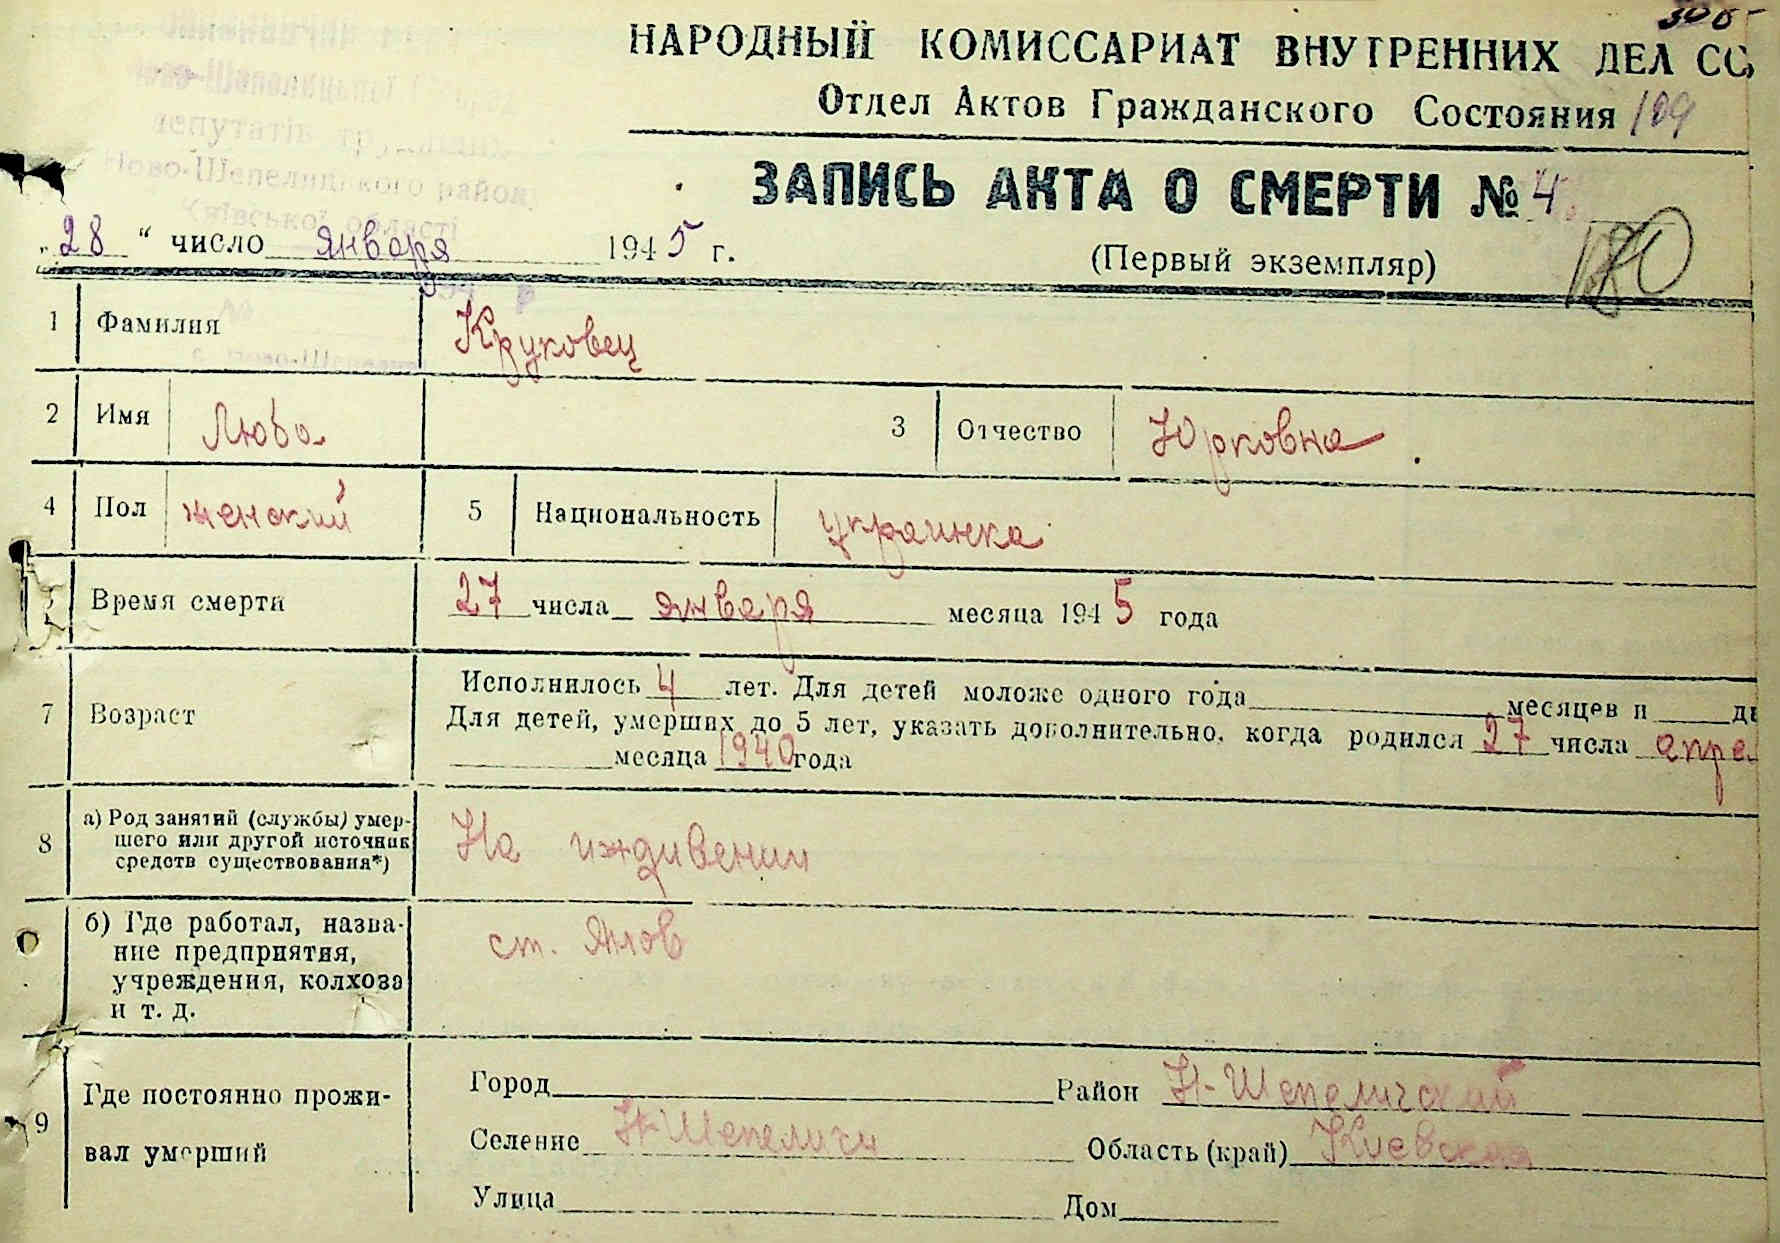 НАРОДНЫЙ КОМИССАРИАТ ВНУТРЕННИХ ДЕЛ СС
Отдел Актов Гражданского Состояния 109
ЗАПИСЬ АКТА О СМЕРТИ № 4
„28“ число января 1945 г.
(Первый экземпляр)
1 Фамилия Круковец
2 Имя Люба 3 Отчество Юрковна
4 Пол женский 5 Национальность украинка
Время смерти 27 числа января месяца 1945 года
7 Возраст
Исполнилось 4 лет. Для детей моложе одного года месяцев и
Для детей, умерших до 5 лет, указать дополнительно, когда родился 27 числа апре
месяца 1940 года
8 а) Род занятий (службы) умер-
шего или другой источник
средств существования*)
На иждивении
б) Где работал, назва-
ние предприятия,
учреждения, колхоза
и т. д.
ст. Янов
9 Где постоянно прожи-
вал умерший
Город Район Н-Шепеличский
Селение Н-Шепеличи Область (край) Киевская
Улица Дом